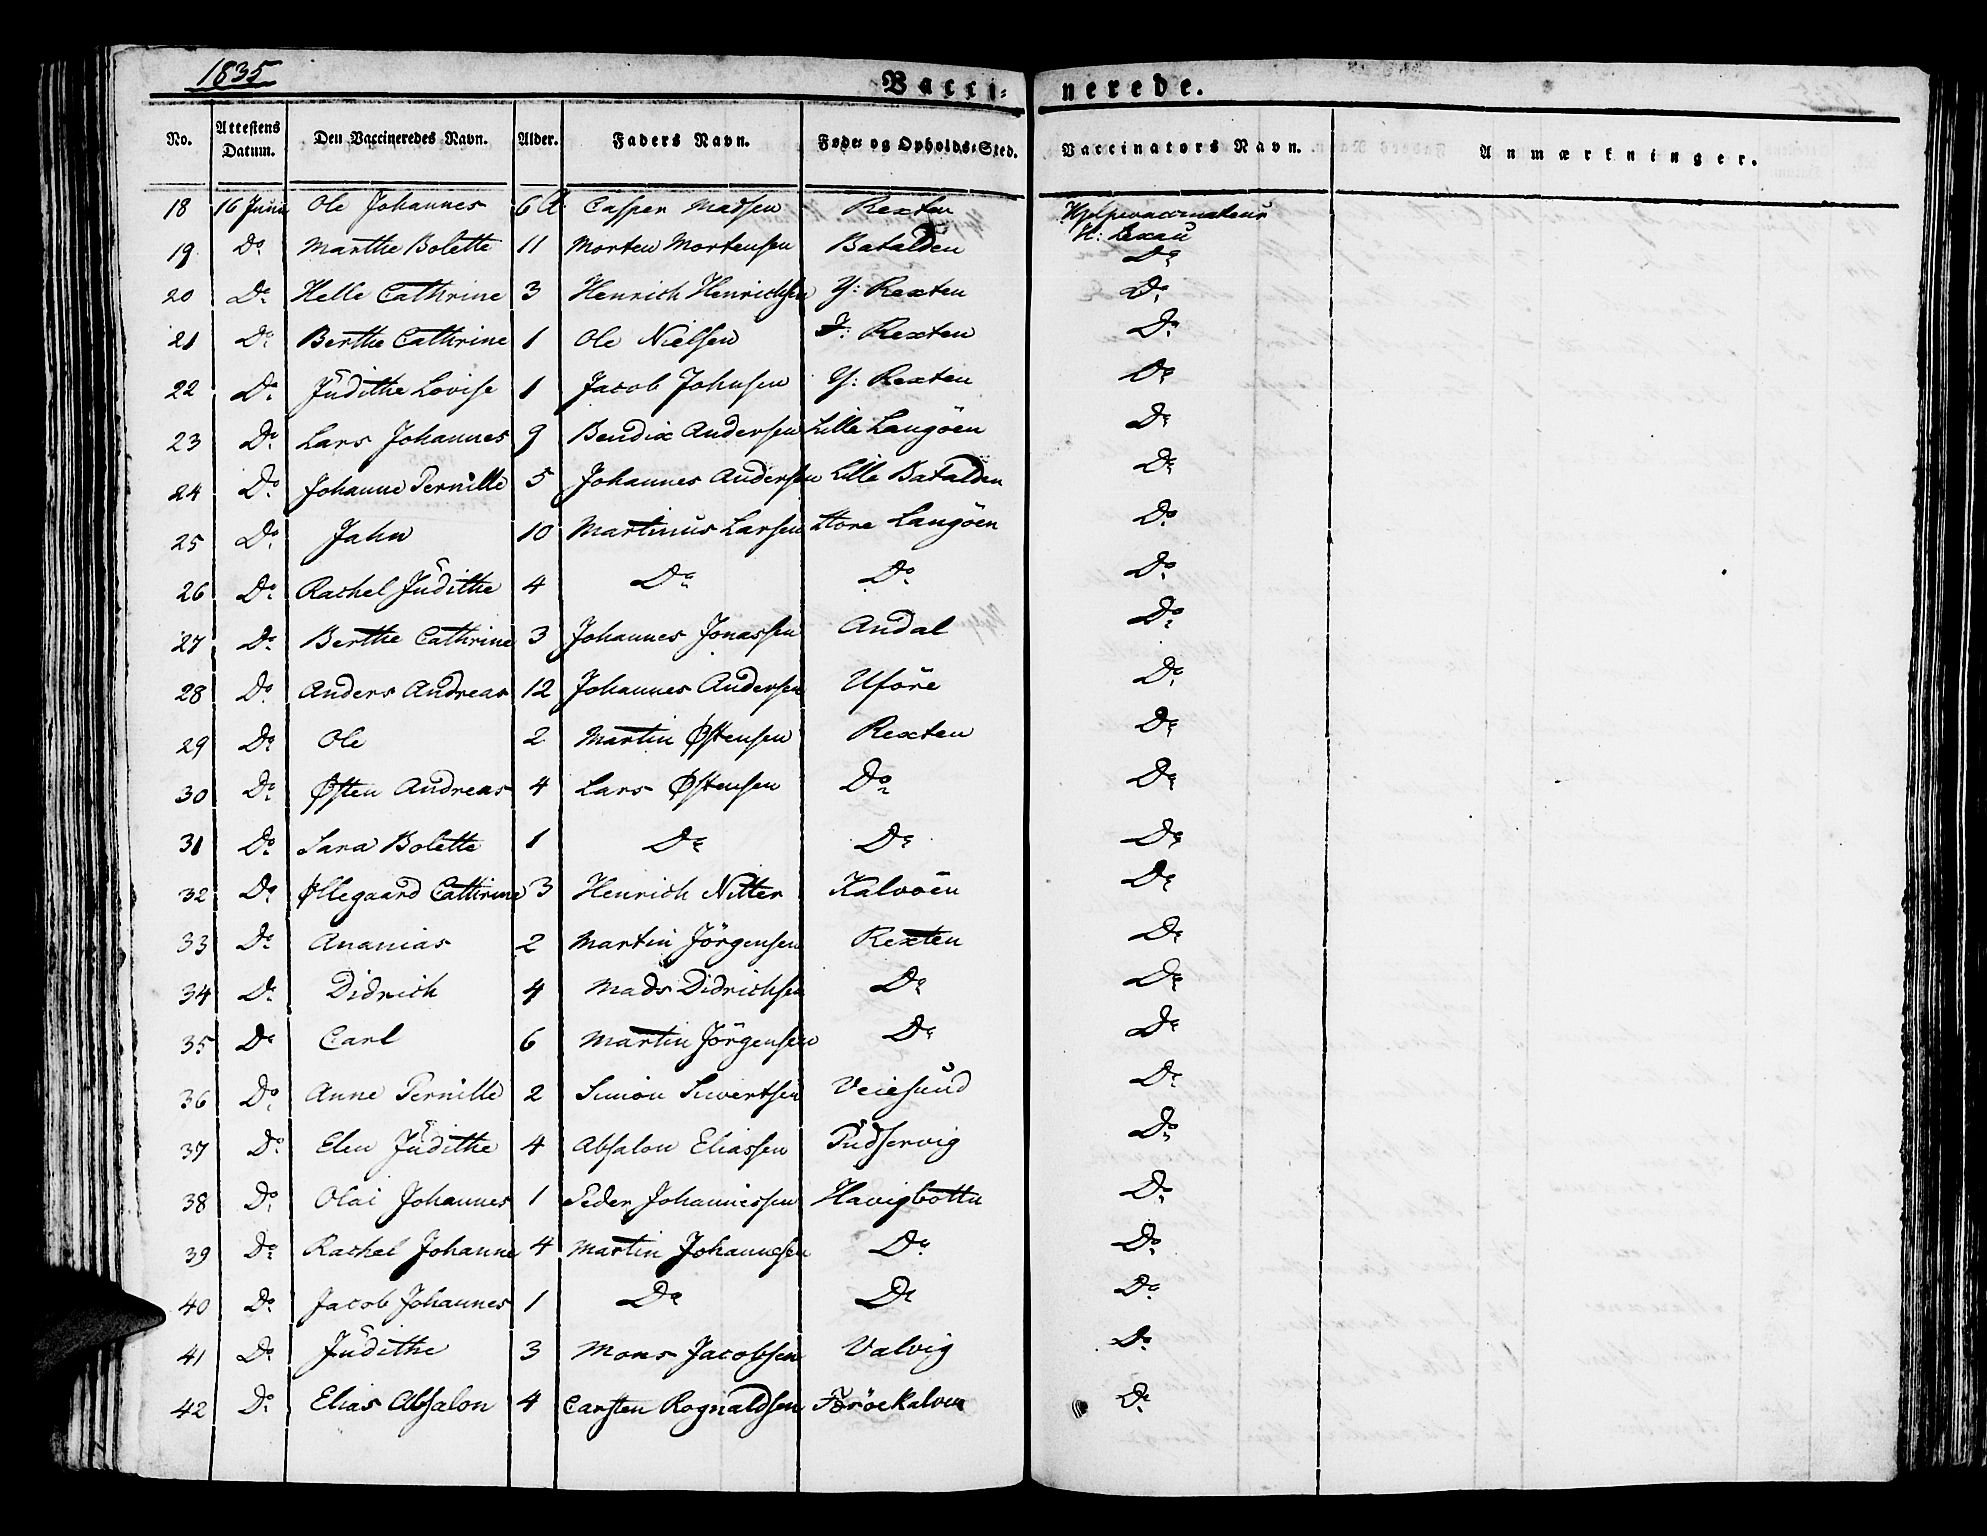 1835
Vacci- nerede.
No. Attestens Datum. Den Vaccineredes Navn. Alder. Faders Navn. Føde- og Opholds-Sted. Vaccinators Navn. Anmærkninger.
18 16 Juni Ole Johannes 6 A Casper Madsen Rexten Hjelpevaccinateur
H:
19 Do Marthe Bolette 11 Morten Mortensen Batalden Do
20 Do Helle Cathrine 3 Henrich Henrichsen Y: Rexten Do
21 Do Berthe Cathrine 1 Ole Nielsen I: Rexten Do
22 Do Jüdithe Lovise 1 Jacob Johnsen Y: Rexten Do
23 Do Lars Johannes 9 Bendix Andersen Lille Langöen Do
24 Do Johanne Pernille 5 Johannes Andersen Lille Batalden Do
25 Do Jahn 10 Martinus Larsen Store Langöen Do
26 Do Rachel Jüdithe 4 Do Do Do
27 Do Berthe Cathrine 3 Johannes Jonassen Andal Do
28 Do Anders Andreas 12 Johannes Andersen Uföre Do
29 Do Ole 2 Martin Østensen Rexten Do
30 Do Østen Andreas 4 Lars Østensen Do Do
31 Do Sara Bolette 1 Do Do Do
32 Do Øllegaard Cathrine 3 Henrich Nitter Kalvöen Do
33 Do Ananias 2 Martin Jörgensen Rexten Do
34 Do Didrich 4 Mads Didrichsen Do Do
35 Do Carl 6 Martin Jörgensen Do Do
36 Do Anne Pernille 2 Simon Sivertsen Veiesund Do
37 Do Elen Jüdithe 4 Absalon Eliassen Do
38 Do Olai Johannes 1 Peder Johannessen Havigbottn Do
39 Do Rachel Johanne 4 Martin Johannesen Do Do
40 Do Jacob Johannes 1 Do Do Do
41 Do Jüdithe 3 Mons Jacobsen Valvig Do
42 Do Elias Absalon 4 Carsten Rognaldsen Do